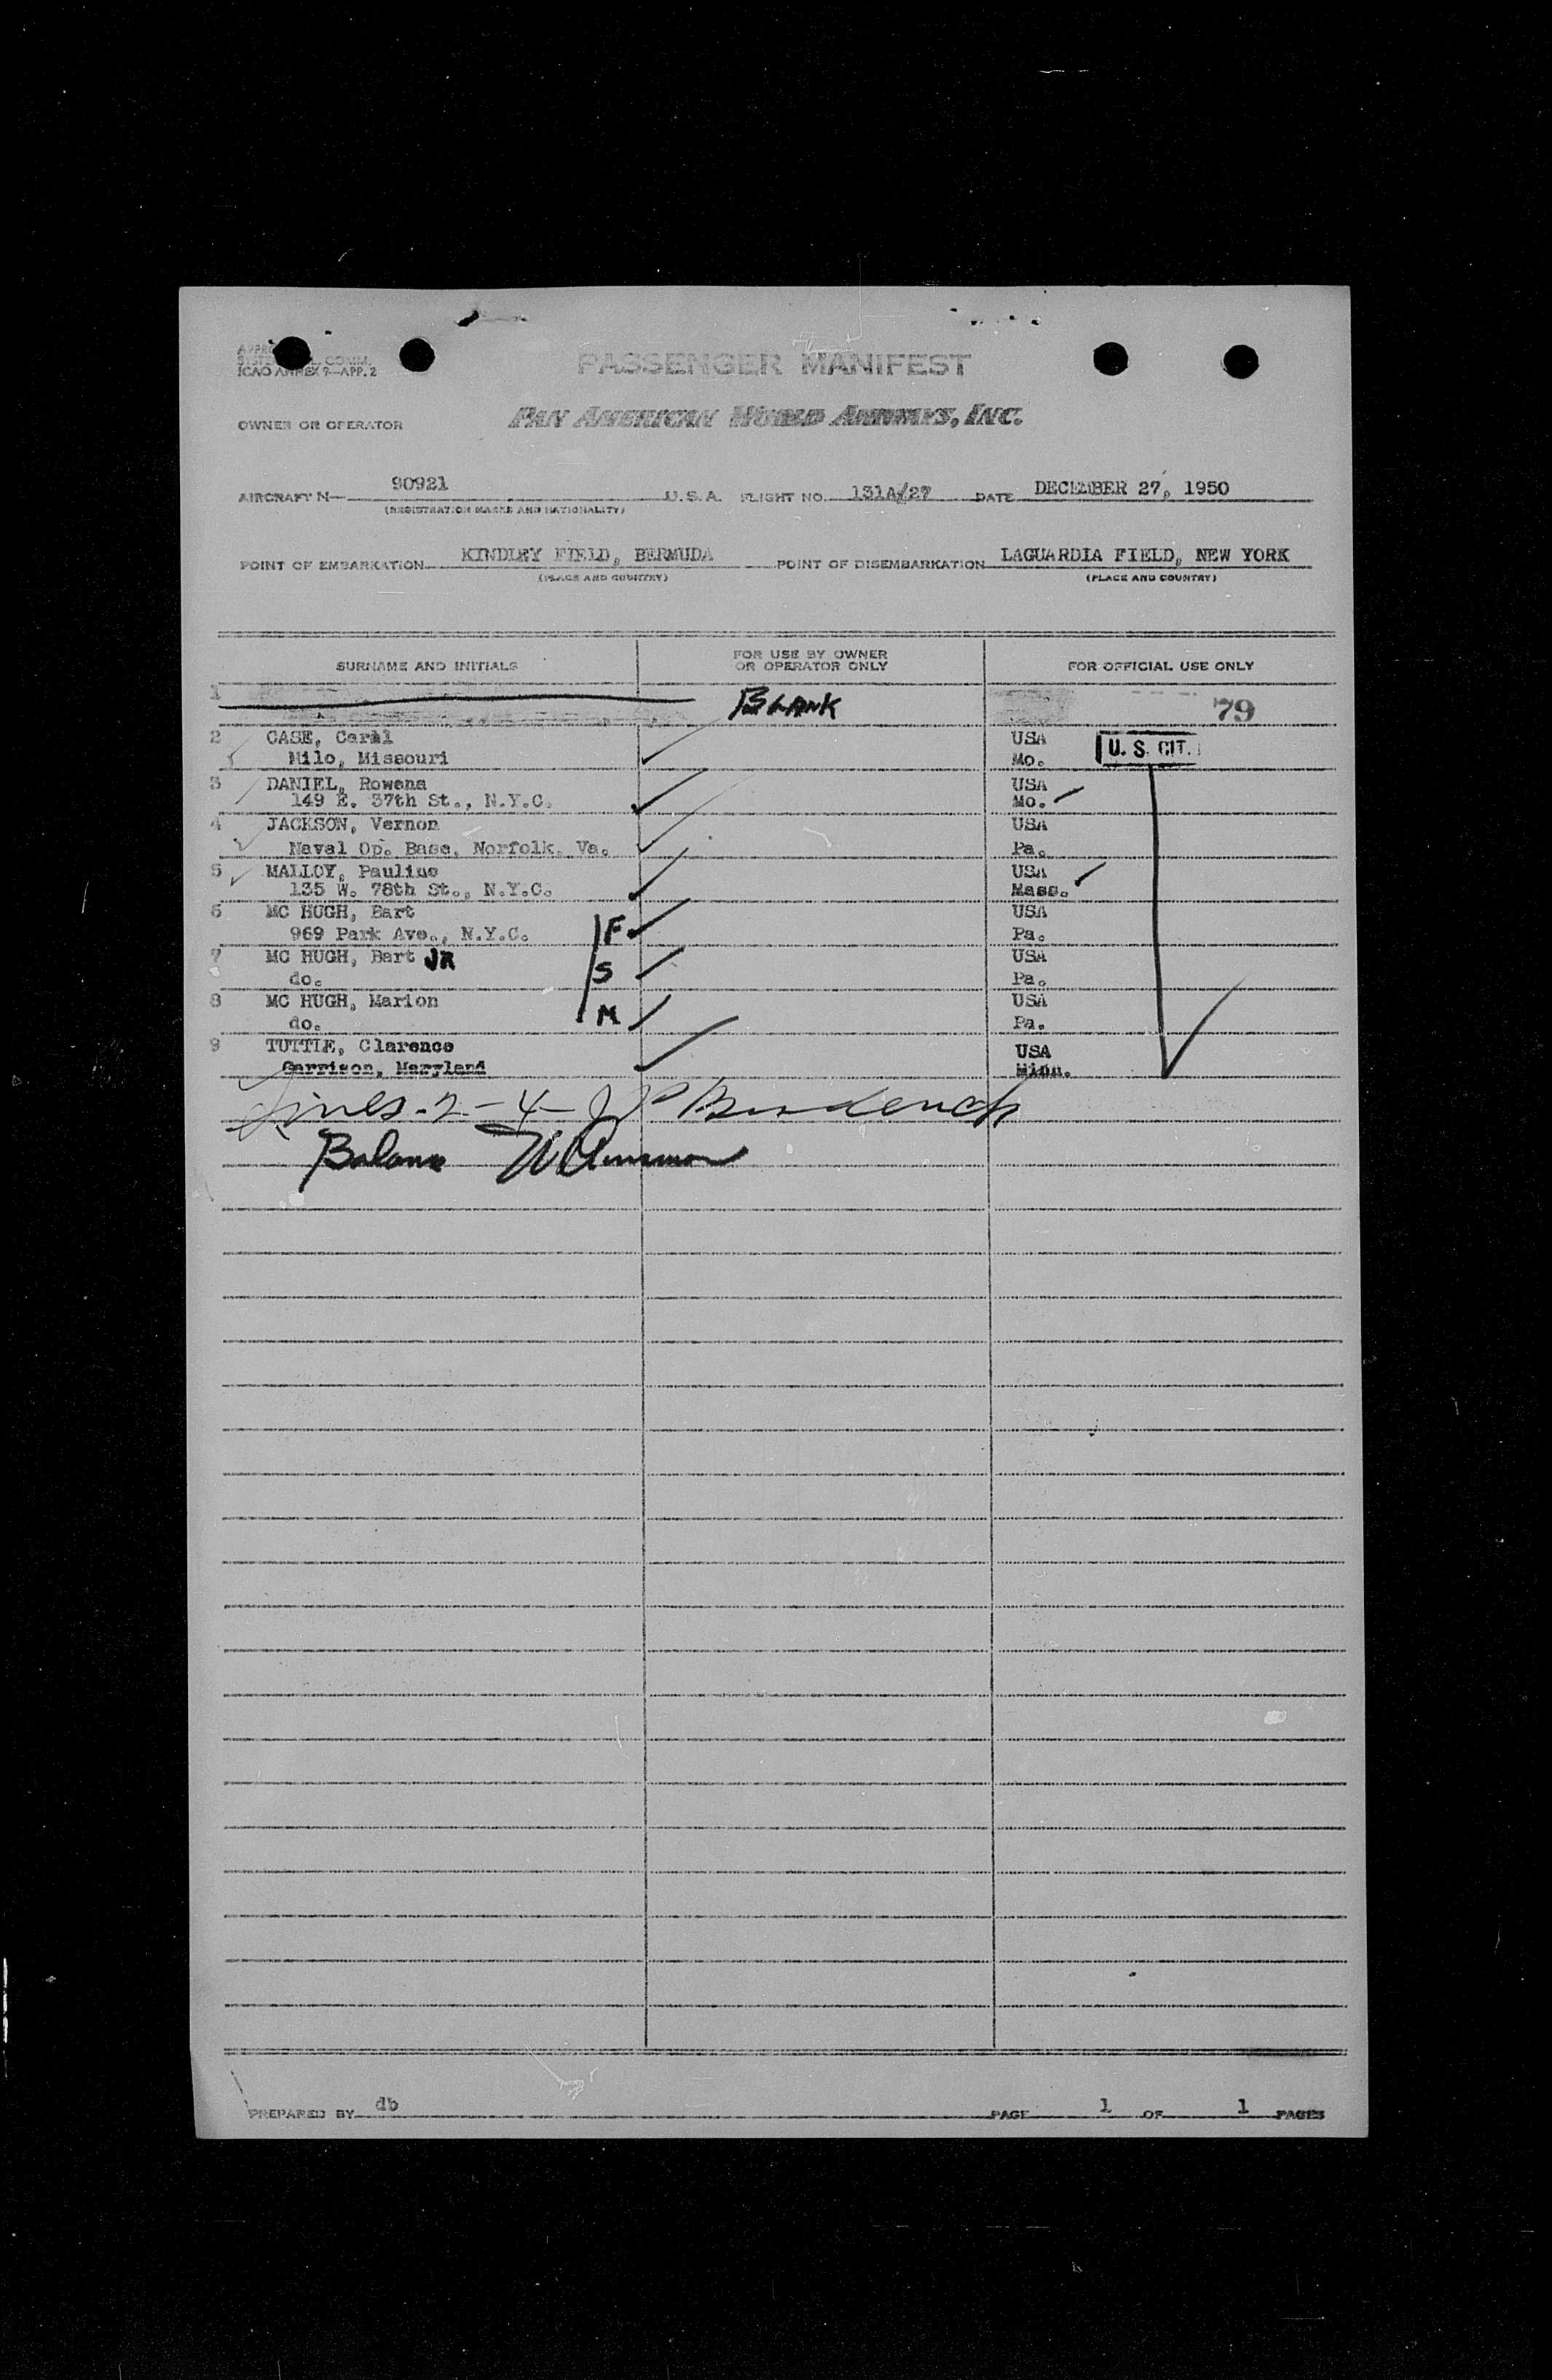 ICAO ANNEX 9—APP. 2
PASSENGER MANIFEST
OWNER OR OPERATOR PAN AMERICAN WORLD AIRWAYS, INC.
AIRCRAFT N— 90921 U. S. A. FLIGHT NO. 131A/27 DATE DECEMBER 27, 1950
(REGISTRATION MARKS AND NATIONALITY)
POINT OF EMBARKATION KINDLEY FIELD, BERMUDA POINT OF DISEMBARKATION LAGUARDIA FIELD, NEW YORK
(PLACE AND COUNTRY) (PLACE AND COUNTRY)
SURNAME AND INITIALS FOR USE BY OWNER OR OPERATOR ONLY FOR OFFICIAL USE ONLY
1 BLANK 79
2 CASE, Carol USA U. S. CIT.
Milo, Missouri Mo.
3 DANIEL, Rowena USA
149 E. 37th St., N.Y.C. Mo.
4 JACKSON, Vernon USA
Naval Op. Base, Norfolk, Va. Pa.
5 MALLOY, Pauline USA
135 W. 78th St., N.Y.C. Mass.
6 MC HUGH, Bart USA
969 Park Ave., N.Y.C. F Pa.
7 MC HUGH, Bart JR USA
do. S Pa.
8 MC HUGH, Marion USA
do. M Pa.
9 TUTTLE, Clarence USA
Garrison, Maryland Minn.
Lines - 2 - 4 -
Balance
PREPARED BY db PAGE 1 OF 1 PAGES